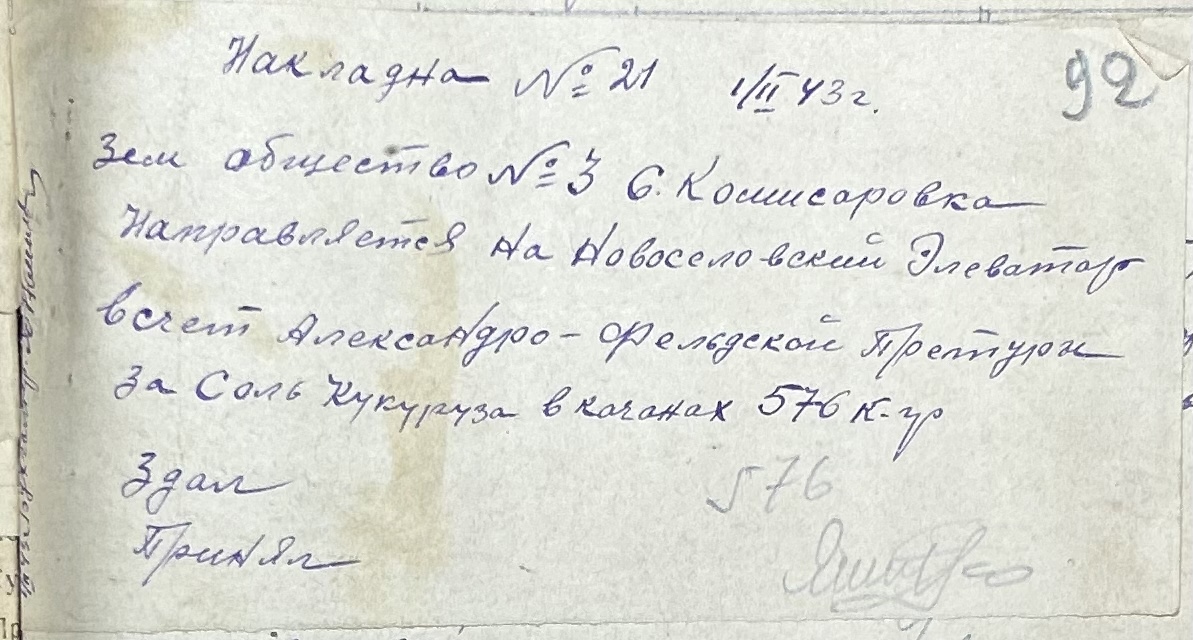 Накладна № 21 1/II 43 г. 92
Зем общество № 3 С. Комисаровка
Направляется на Новоселовский Элеватор
в счет Александро-Фельдской Претуры
за Соль Кукуруза в качанах 576 к-гр
Здал
576
Принял